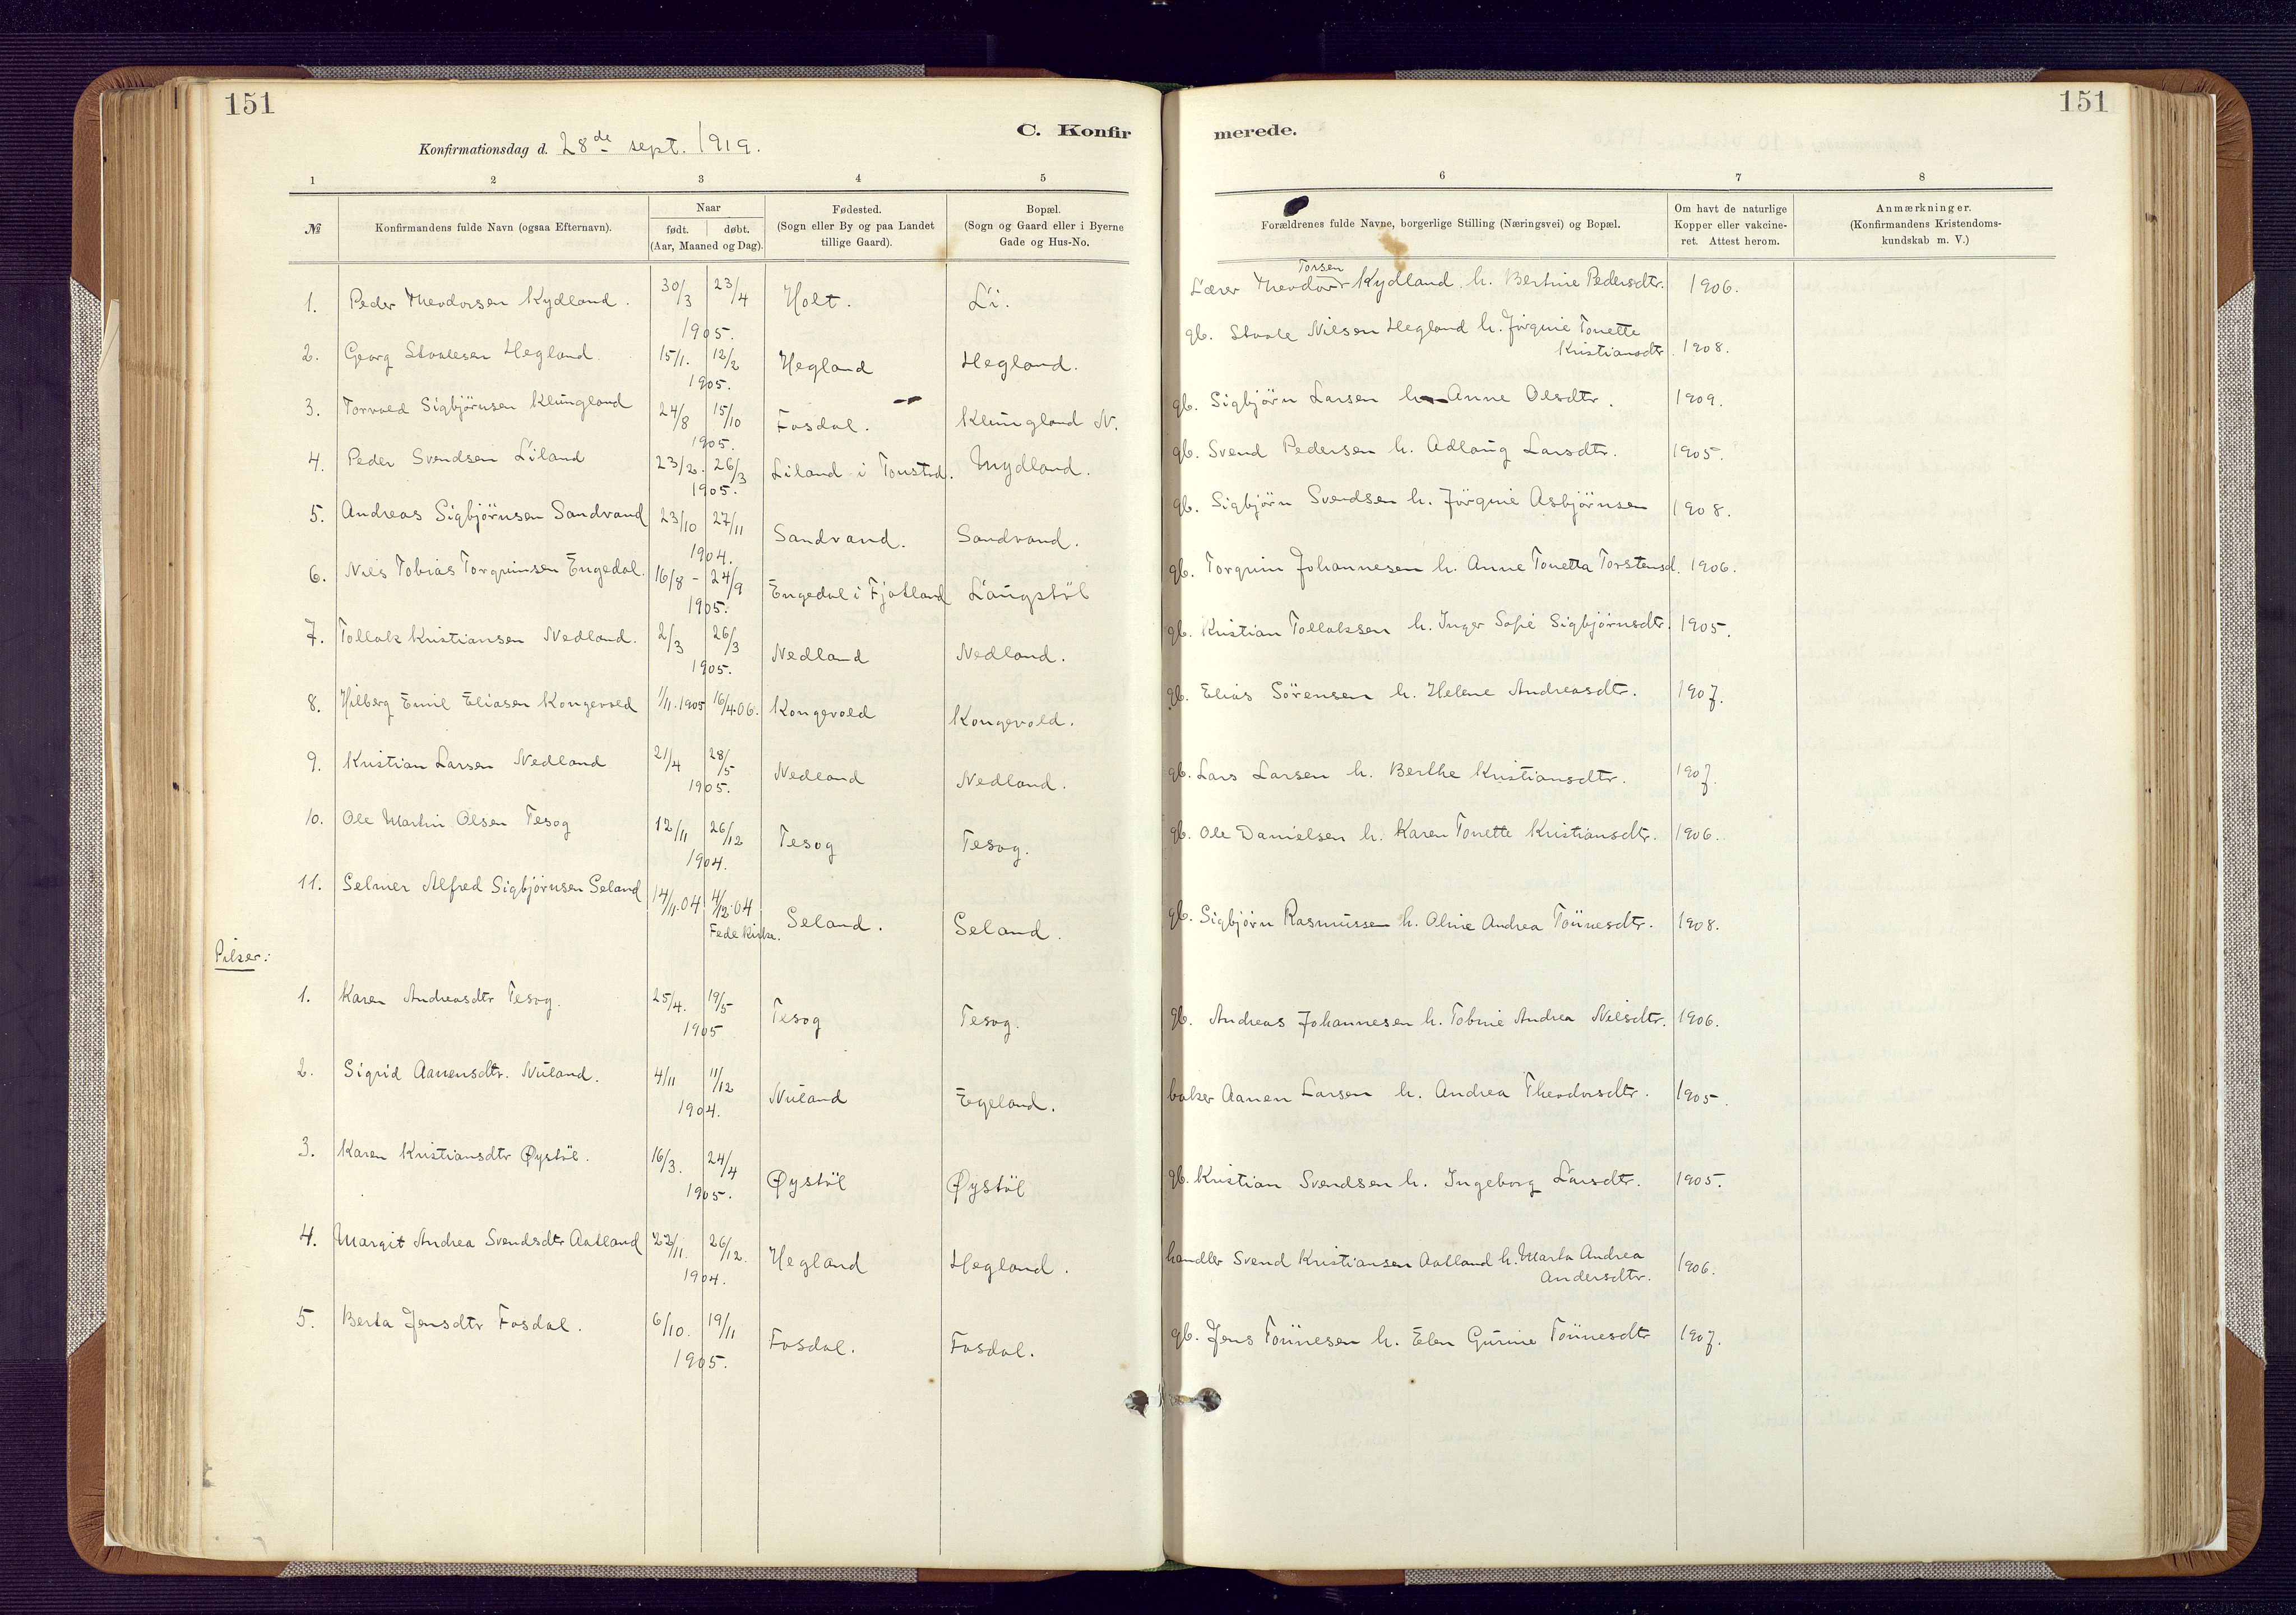 151
151
C. Konfir
merede.
Konfirmationsdag d. 28de sept. 1919.
1 2 3 4 5
6 7 8
№
Konfirmandens fulde Navn (ogsaa Efternavn).
Naar
født. døbt.
(Aar, Maaned og Dag).
Fødested.
(Sogn eller By og paa Landet
tillige Gaard).
Bopæl.
(Sogn og Gaard eller i Byerne
Gade og Hus-No.
Forældrenes fulde Navne, borgerlige Stilling (Næringsvei) og Bopæl.
Om havt de naturlige
Kopper eller vakcine-
ret. Attest herom.
Anmærkninger.
(Konfirmandens Kristendoms-
kundskab m. V.)
Torsen
1. Peder Theodorsen Kydland. 30/3 23/4 Holt. Li. Lærer Theodor Kydland h. Bertine Pedersdtr. 1906.
1905.
2. Georg Staalesen Hegland. 15/1. 12/2 Hegland Hegland. gb. Staale Nilsen Hegland h. Jørgine Tonette
Kristiansdtr. 1908.
1905.
3. Torvald Sigbjörnsen Klungland 24/8 15/10 Fosdal. Klungland N. gb. Sigbjörn Larsen h. Anne Olsdtr. 1909.
1905.
4. Peder Svendsen Liland 23/2. 26/3 Liland i Tonstad. Mydland. gb. Svend Pedersen h. Adlaug Larsdtr. 1905.
1905.
5. Andreas Sigbjörnsen Sandvand 23/10 27/11 Sandvand. Sandvand. gb. Sigbjörn Svendsen h. Jörgine Asbjörnsen 1908.
1904.
6. Nils Tobias Torgrimsen Engedal. 16/8 - 24/9 Engedal i Fjotland Langstöl gb. Torgrim Johannesen h. Anne Tonetta Torstensd. 1906.
1905.
7. Tollak Kristiansen Nedland. 2/3 26/3 Nedland Nedland. gb. Kristian Tollaksen h. Inger Sofie Sigbjörnsdtr. 1905.
1905.
8. Hilberg Emil Eliasen Kongevold 1/11.1905 16/4.06. Kongevold Kongevold. gb. Elias Sörensen h. Helene Andreasdtr. 1907.
9. Kristian Larsen Nedland 21/4 28/5 Nedland Nedland. gb. Lars Larsen h. Berthe Kristiansdtr. 1907.
1905.
10. Ole Martin Olsen Tesog 12/11 26/12 Tesog Tesog. gb. Ole Danielsen h. Karen Tonette Kristiansdtr. 1906.
1904.
11. Selmer Alfred Sigbjörnsen Seland 14/11.04 4/12.04 Seland. Seland. gb. Sigbjörn Rasmussen h. Oline Andrea Tönnesdtr. 1908.
Fede Kirke.
Piker:
1. Karen Andreasdtr Tesog. 25/4. 19/5 Tesog Tesog. gb. Andreas Johannesen h. Tobine Andrea Nilsdtr. 1906.
1905
2. Sigrid Aanensdtr. Nuland. 4/11 11/12 Nuland Egeland. baker Aanen Larsen h. Andrea Theodorsdtr. 1905.
1904.
3. Karen Kristiansdtr Øystöl. 16/3. 24/4 Øystöl Øystöl gb. Kristian Svendsen h. Ingeborg Larsdtr. 1905.
1905.
4. Margit Andrea Svendsdtr Aatland 22/11. 26/12. Hegland Hegland. handler Svend Kristiansen Aatland h. Marta Andrea
Andersdtr. 1906.
1904.
5. Berta Jensdtr Fosdal. 6/10. 19/11 Fosdal. Fosdal. gb. Jens Tönnesen h. Elen Gurine Tönnesdtr 1907.
1905.